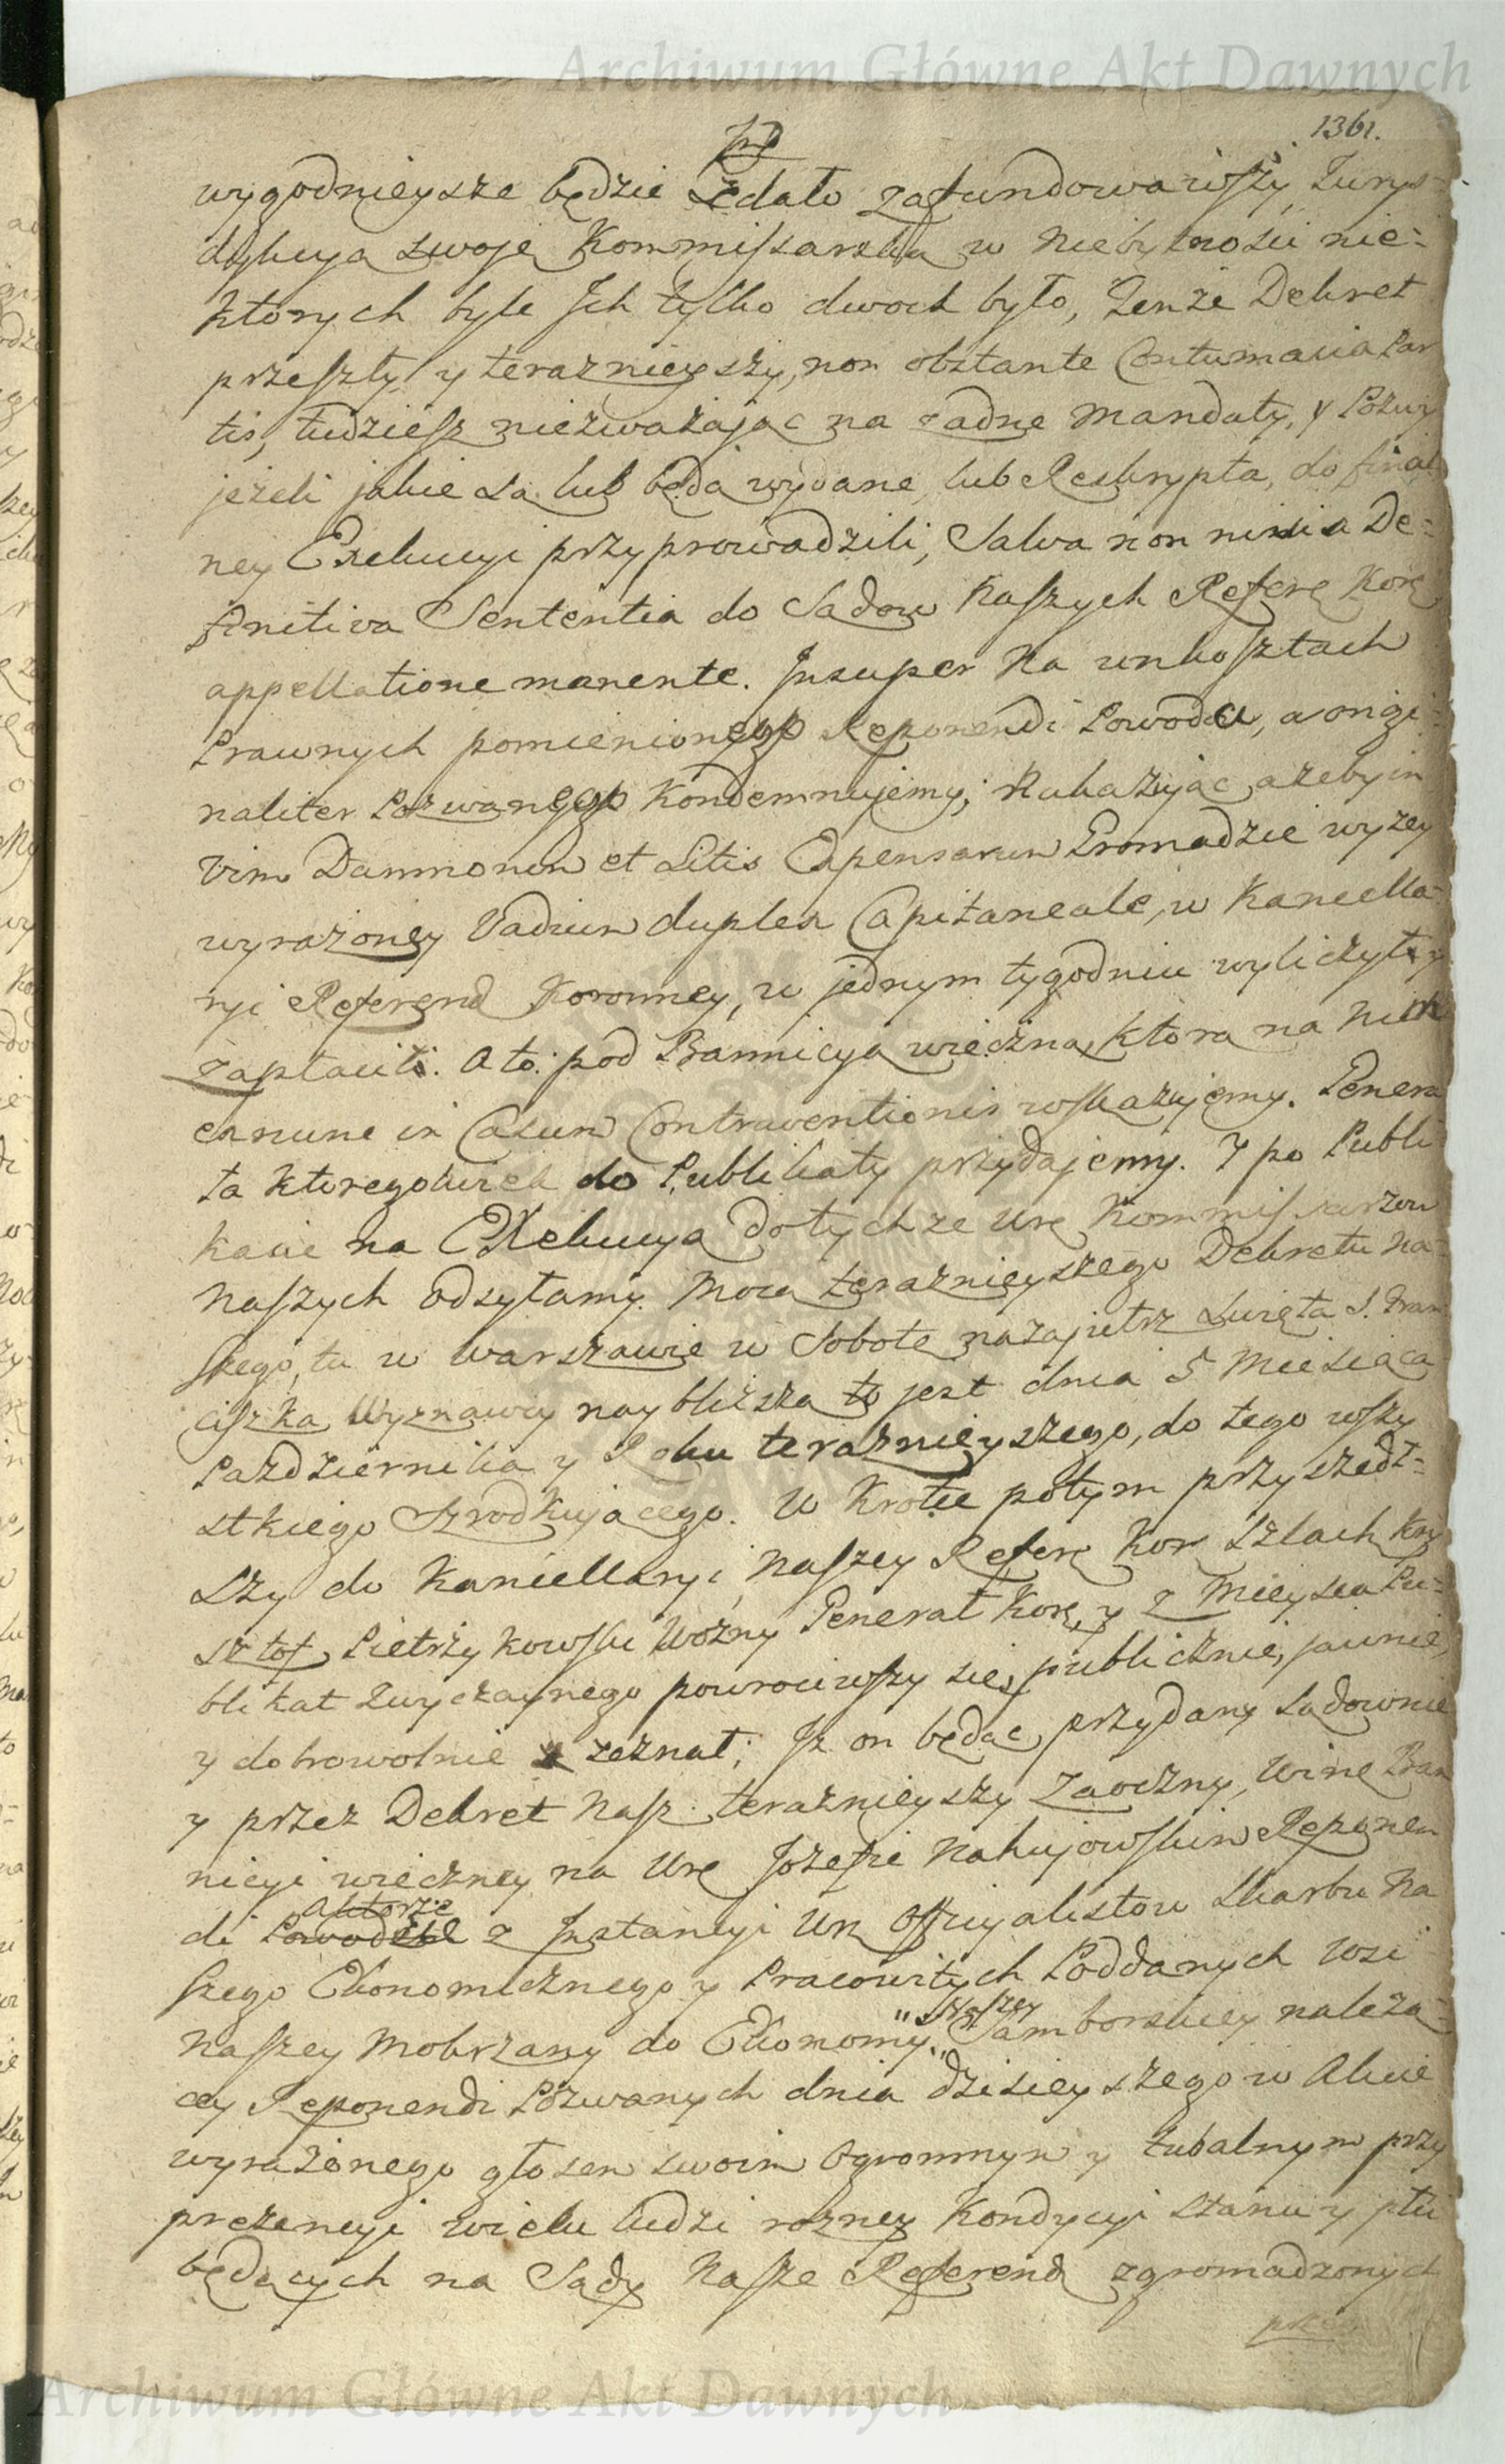 Archiwum Główne Akt Dawnych
1361.
wygodnieysze będzie zdało zafundowawszy Jurys-
dykcyą swoję Kommissarską w niebytności nie-
których byle Ich tylko dwoch było, tenże Dekret
przeszły y teraznieyszy, non obstante Contumacia Par
tis, tudziesz niezwazając na zadne Mandaty, y Pozwy
jeżeli jakie są lub będą wydane, lub Reskrypta, do final
ney Exekucyi przyprowadzili, Salva non nisi a De-
finitiva Sententia do Sądow Naszych Referę Korę
appellatione manente. Insuper Na unkosztach
Prawnych pomienionego Reponendi Powoda, a origi-
naliter Pozwanego Kondemnujemy; Nakazując azeby in
vim Damnorum et Litis Expensarum Gromadzie wyzey
wyrażoney Vadium duplex Capitaneale, w Kancella-
ryi Referend Koronney, w jednym tygodniu wyliczył y
zapłacił. A to pod Bannicyą wieczną, ktora na Nim
exnunc in Casum Contraventionis wskazujemy. Genera
ła ktoregokwiek do Publikaty przydajemy. Y po Publi
kacie na Exekucyą do tychze Urę Kommissarzow
Naszych odsyłamy. Mocą teraznieyszego Dekretu Na-
szego, tu w Warszawie w Sobotę nazajutrz Swięta S. Fran
ciszka Wyznawcy naybliższą to jest dnia 5 Miesiąca
Pazdziernika y Roku teraznieyszego, do tego wszy
stkiego Szrodkującego. W krotce potym przyszedł-
szy do Kancellaryi Naszey Referę Korę Szlach Krzy
sztof Pietrzykowski Woźny Generał Korę, y z Mieysca Pu-
blikat Zwyczaynego powrociwszy się, publicznie, jawnie,
y dobrowolnie zeznał; Iz on będąc przydany Sądownie
y przez Dekret Nasz teraznieyszy Zaoczny, winę Ban
nicyi wieczney na Urę Jozefie Nahujowskim Reponen
Aktorze
di Powodzie z Instancyi Ur Officyalistow Skarbu Na
szego Ekonomicznego y Pracowitych Poddanych wsi
Naszey
Naszey Mokrzany do Ekonomy. Samborskiey należą-
cey Reponendi Pozwanych dnia dzisieyszego w Akcie
wyrażonego głosem swoim Ogromnym y Tubalnym przy
prezencyi wielu ludzi rożney Kondycyi Stanu y płci
będących na Sądy Nasze Referend zgromadzonych
Archiwum Główne Akt Dawnych